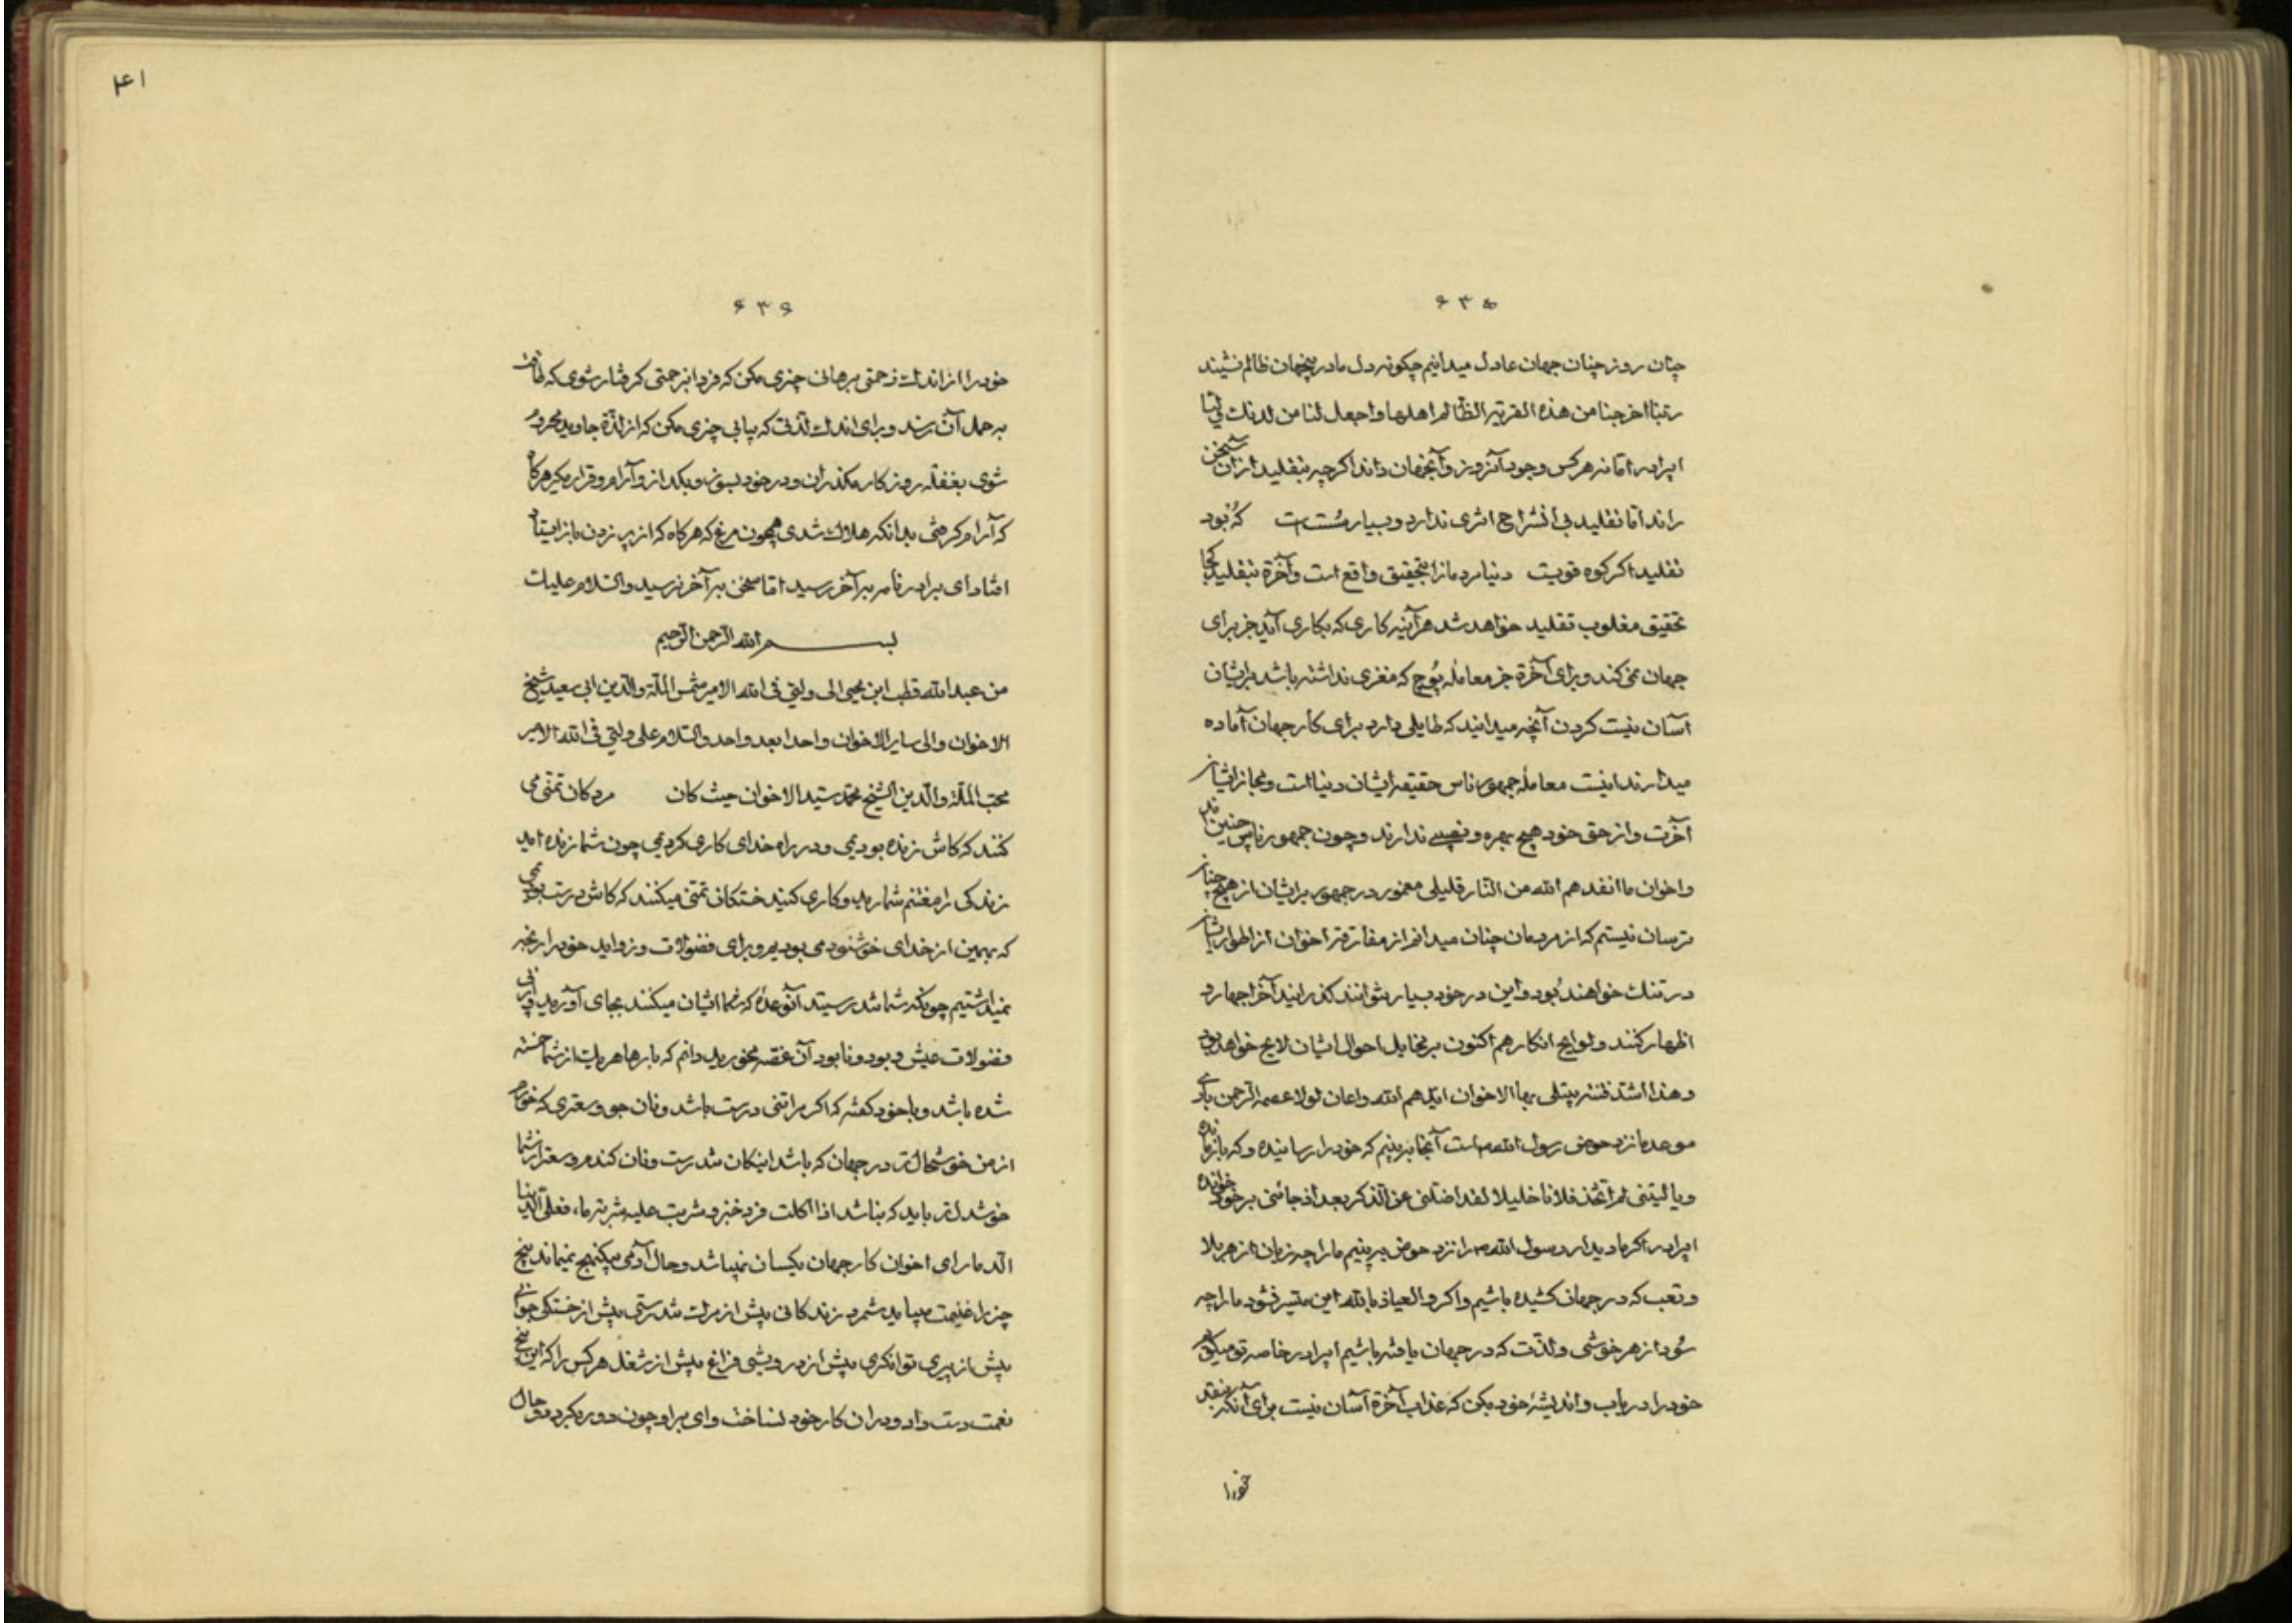 ۶۳۵
چنان روز چنان جهان عادل میدانیم چکونه دل ما درینجهان ظالم نشیند
ربنا اخرجنا من هذه القریة الظالم اهلها واجعل لنا من لدنك ولیا
ایبرادر اما نه هرکس وجود آنروز و آنجهان داند اکرچه بتقلید ازان سخن
راند اما تقلید بی انشراح اثری ندارد و بسیار سست است که بود
تقلید اکر کوه قویت دنیا مردمانرا بتحقیق واقع است و آخرة بتقلید کجا
تحقیق مغلوب تقلید خواهد شد هرآینه کاری که بکاری آید جز برای
جهان نمی کند و برای آخرة جز معامله پوچ که مغزی نداشته باشد برایشان
آسان نیست کردن آنچه میدانید که طایلی دارد برای کار جهان آماده
میدارند اینست معامله جمهور ناس حقیقه ایشان دنیا است و مجاز ایشان
آخرت و از حق خود هیچ بهره و نصیبی ندارند و چون جمهور ناس چنین اند
و اخوان ما انقدهم الله من النار قلیلی مغمور در جمهور برایشان از هیچ چنان
ترسان نیستم که از مردمان چنان میدانم از مفارقت اخوان از اطوار ایشان
در تنك خواهند بود و این در خود بسیار نتوانند کذرانید آخر اجهار رد
اظهار کنند و لوایح انکار هم اکنون بر مخایل احوال ایشان لایح خواهد بود
و هذا اشد فتنه یبتلی بها الاخوان ایدهم الله و اعان لولا عصمة الرحمن باری
موعد ما نزد حوض رسول الله ص است آنجا ببینیم که خود را رسانیده و که باز مانده
و یا لیتنی لم اتخذ فلانا خلیلا لقد اضلنی عن الذکر بعد اذ جائنی بر خود خوانده
ایبرادر اکر ما دیدار رسول الله ص را نزد حوض ببینیم ما را چه زیان از هر بلا
و تعب که در جهان کشیده باشیم و اکر و العیاذ بالله این متیسر نشود ما را چه
سود از هر خوشی و لذت که در جهان یافته باشیم ایبرادر خاصه تو میکویم
خود را دریاب و اندیشهٔ خود بکن که عذاب آخرة آسان نیست برای آنکه بنقد
خود را
۴۱
۶۳۶
خود را از اندك زحمتی برهانی چیزی مکن که فردا بزحمتی کرفتار شوی که طاقت
به حمل آن نرسد و برای اندك لذتی که بیابی چیزی مکن که از لذة جاوید محروم
شوی بغفله روزکار مکذران و در خود بسوز و بکداز و آرام و قرار مکیر هرکاه
که آرام کرفتی بدانکه هلاك شدی همچون مرغ که هرکاه که از پر زدن باز ایستاد
افتاد ای برادر نامه بآخر رسید اما سخن بآخر نرسید والسلام علیك
بسم الله الرحمن الرحیم
من عبد الله قطب ابن یحیی الی ولیی فی الله الامیر شمس الملة والدین ابی سعید شیخ
الاخوان والی سایر الاخوان واحدا بعد واحد والسلام علی ولیی فی الله الامیر
محب الملة والدین الشیخ محمد سید الاخوان حیث کان مردکان تمنی می
کنند که کاش زنده بودیمی و در راه خدای کاری کردیمی چون شما زنده اید
زندکی را مغتنم شمارید و کاری کنید خستکان تمنی میکنند که کاش درست بودیمی
که بهمین از خدای خوشنود می بودیم و برای فضولات و زواید خود را رنجه
نمیداشتیم چونکه شما تندرستید آنوعده که شما ایشان میکنند بجای آورید و برای
فضولات عیش و بود و نابود آن غصه مخورید دانم که بارها هریك از شما خسته
شده باشد و با خود کفته که اکر مرا تنی درست باشد و نان جو و سعتری که خورم
از من خوشحال تر در جهان که باشد اینکان تندرست و نان کندم و سعتر از شما
خوشدل تر باید که نباشد اذا اکلت فرد خبز و شربت علیه شربة ماء فعلی الدنیا
الدمار ای اخوان کار جهان یکسان نمیباشد و حال آدمی بیکنهج نمیماند پنج
چیز را غنیمت میباید شمرد زندکانی پیش از مرك تندرستی پیش از خستکی جوانی
پیش از پیری توانکری پیش از درویشی فراغ پیش از شغل هرکس را که این پنج
نعمت دست داد و دران کار خود نساخت وای بر او چون دور بکردد و حال